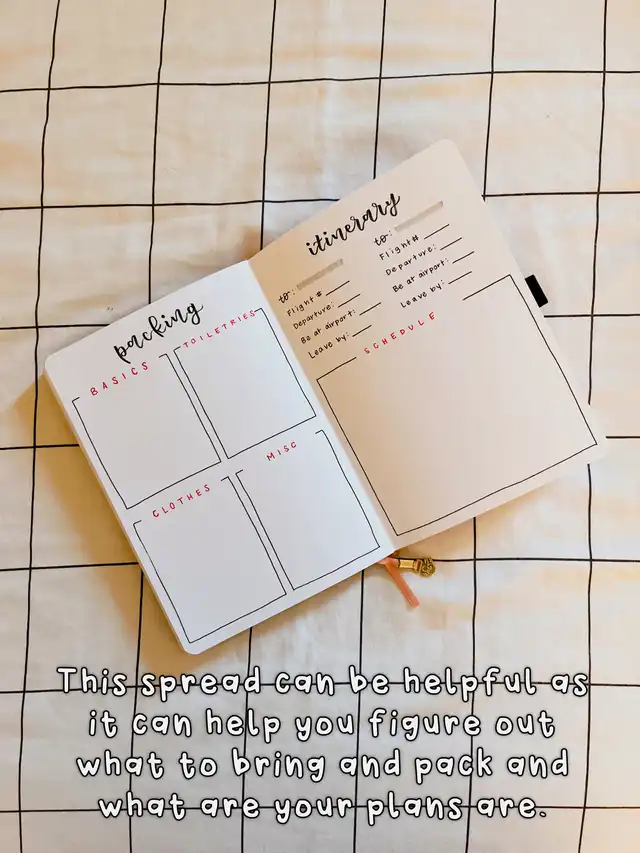 packing
BASICS
TOILETRIES
CLOTHES
MISC
itinerary
to:
Flight #
Departure:
Be at airport:
Leave by:
to:
Flight #
Departure:
Be at airport:
Leave by:
SCHEDULE
This spread can be helpful as
it can help you figure out
what to bring and pack and
what are your plans are.